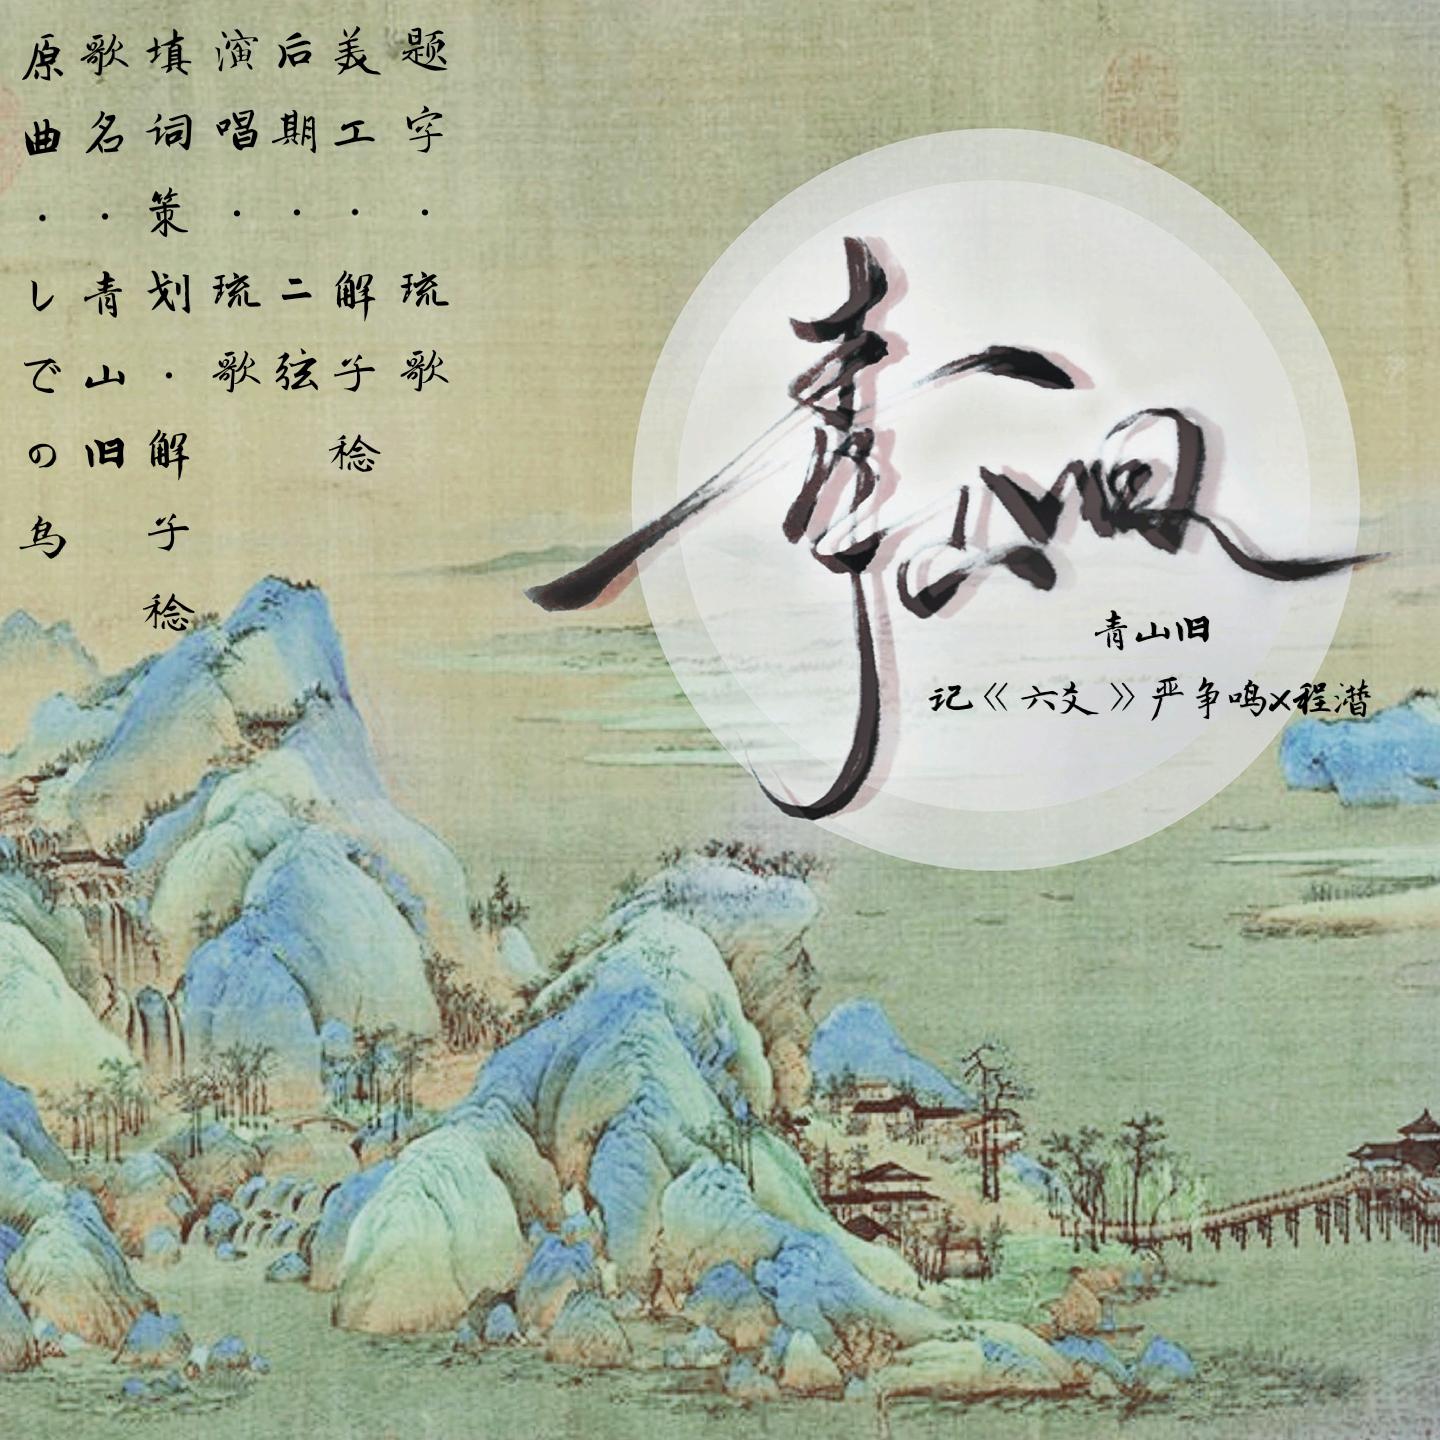 原曲·しでの鸟
歌名·青山旧
填词策划·解子稔
演唱·琉歌
后期·二弦
美工·解子稔
题字·琉歌
青山旧
青山旧
记《六爻》严争鸣x程潜